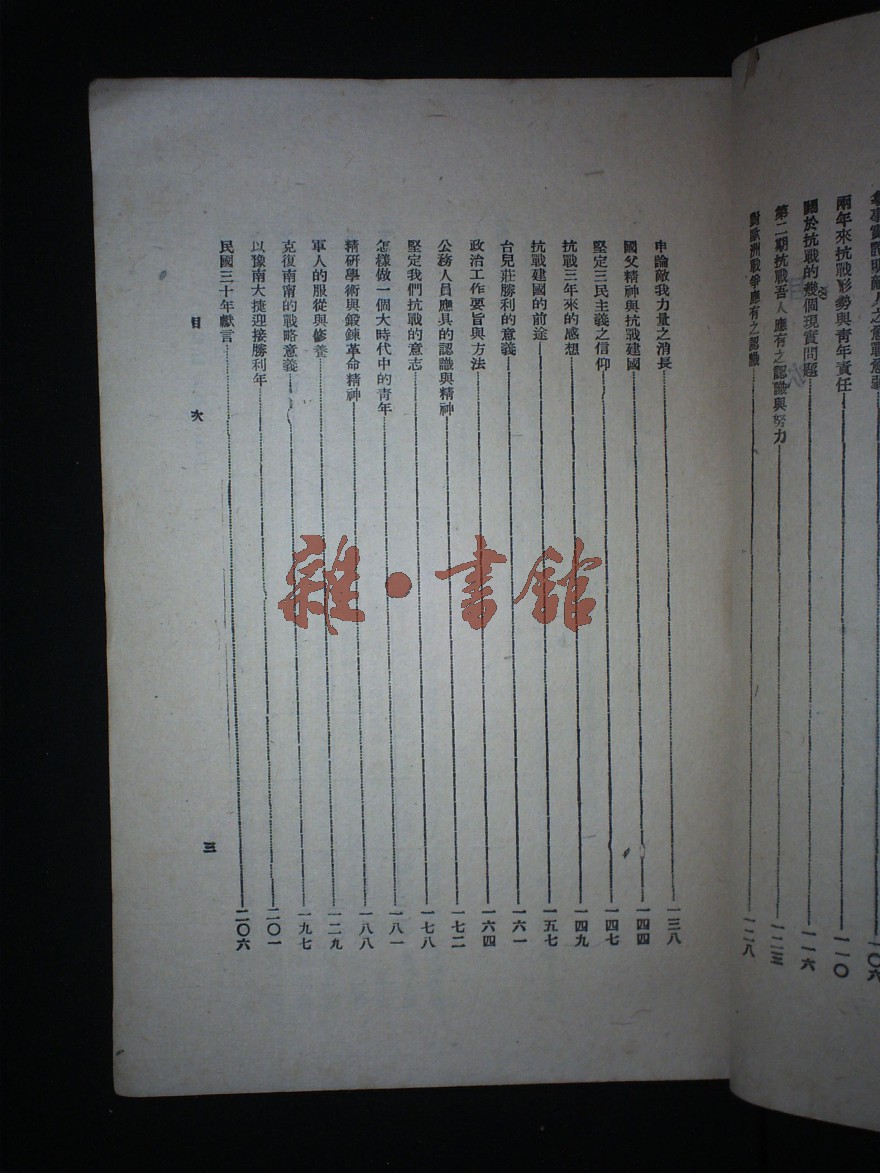 兩年來抗戰形勢與青年責任……一一〇
關於抗戰的幾個現實問題……一一六
第二期抗戰吾人應有之認識與努力……一二三
對歐洲戰爭應有之認識……一二八
申論敵我力量之消長……一三八
國父精神與抗戰建國……一四四
堅定三民主義之信仰……一四七
抗戰三年來的感想……一四九
抗戰建國的前途……一五七
台兒莊勝利的意義……一六一
政治工作要旨與方法……一六四
公務人員應具的認識與精神……一七二
堅定我們抗戰的意志……一七八
怎樣做一個大時代中的青年……一八一
精研學術與鍛鍊革命精神……一八八
軍人的服從與修養……一二九
克復南甯的戰略意義……一九七
以豫南大捷迎接勝利年……二〇一
民國三十年獻言……二〇六
目次
三
雜·書館